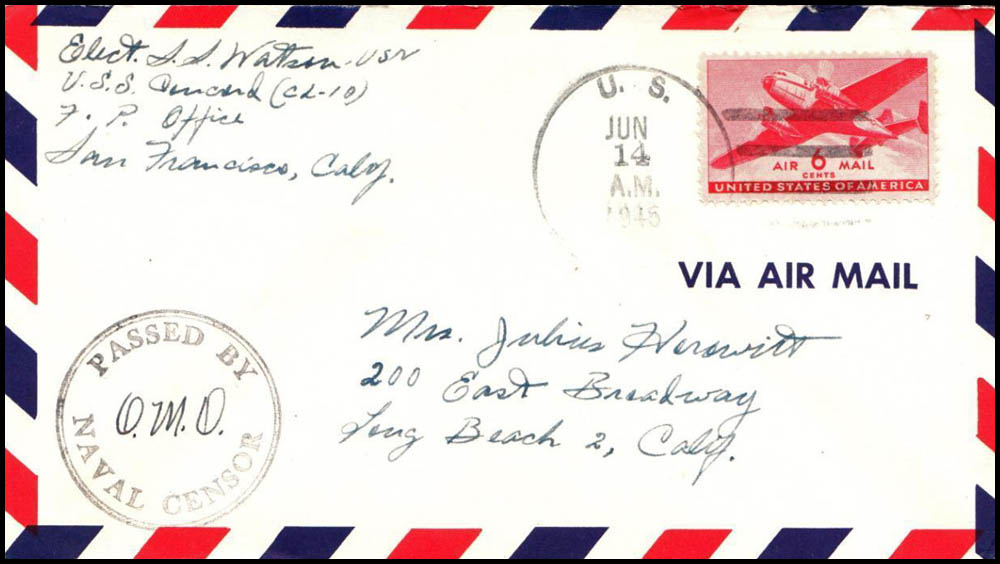 Elect. S. S. Watson - USN
U.S.S. Concord (CL-10)
F. P. Office
San Francisco, Calif.
U. S.
JUN
14
A.M.
1945
AIR 6 MAIL
CENTS
UNITED STATES OF AMERICA
VIA AIR MAIL
Mrs. Julius Horowitt
200 East Broadway
Long Beach 2, Calif.
PASSED BY
O.M.O.
NAVAL CENSOR